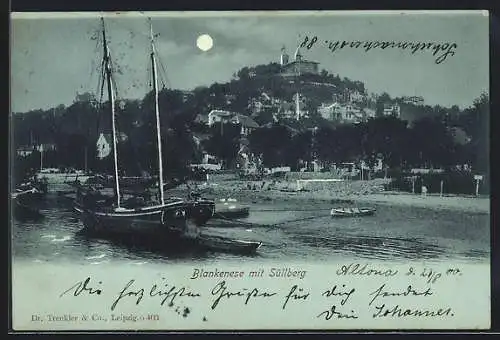 Blankenese mit Süllberg
Altona d. 21/8 00.
Die herzlichsten Grüße für Dich sendet
Dein Johannes.
Dr. Trenkler & Co., Leipzig.